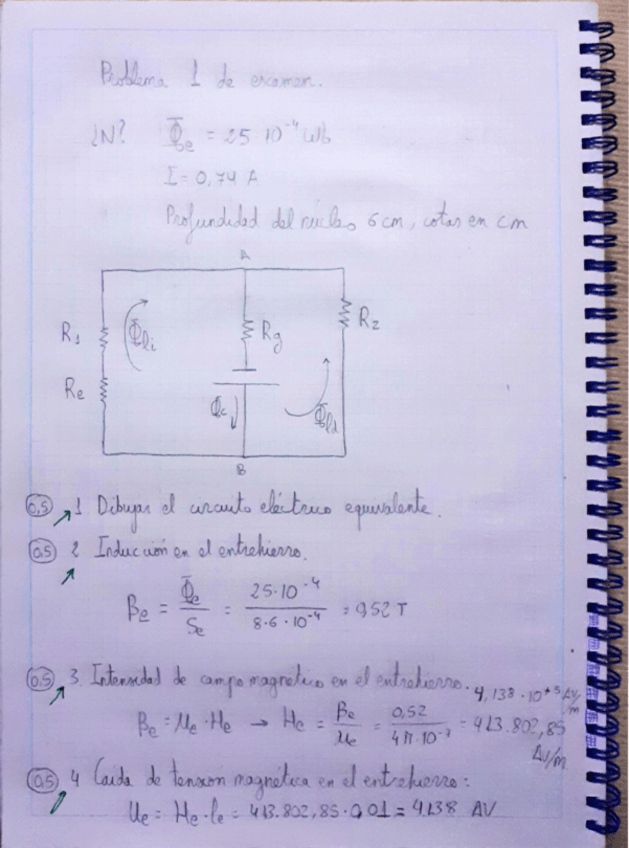 Problema 1 de examen.
¿N? Φe = 25·10⁻⁴ Wb
I = 0,74 A
Profundidad del núcleo 6 cm, cotas en cm
A
R1 Φli Rg R2
Re Φc Φld
B
0,5 1 Dibujar el circuito eléctrico equivalente.
0,5 2 Inducción en el entrehierro.
Be = Φe / Se = 25·10⁻⁴ / 8·6·10⁻⁴ = 0,52 T
0,5 3. Intensidad de campo magnético en el entrehierro. 4,138·10⁺⁵ AV/m
Be = μe·He → He = Be / μe = 0,52 / 4π·10⁻⁷ = 413.802,85 AV/m
0,5 4 Caida de tensión magnética en el entrehierro:
Ue = He·le = 413.802,85·0,01 = 4138 AV